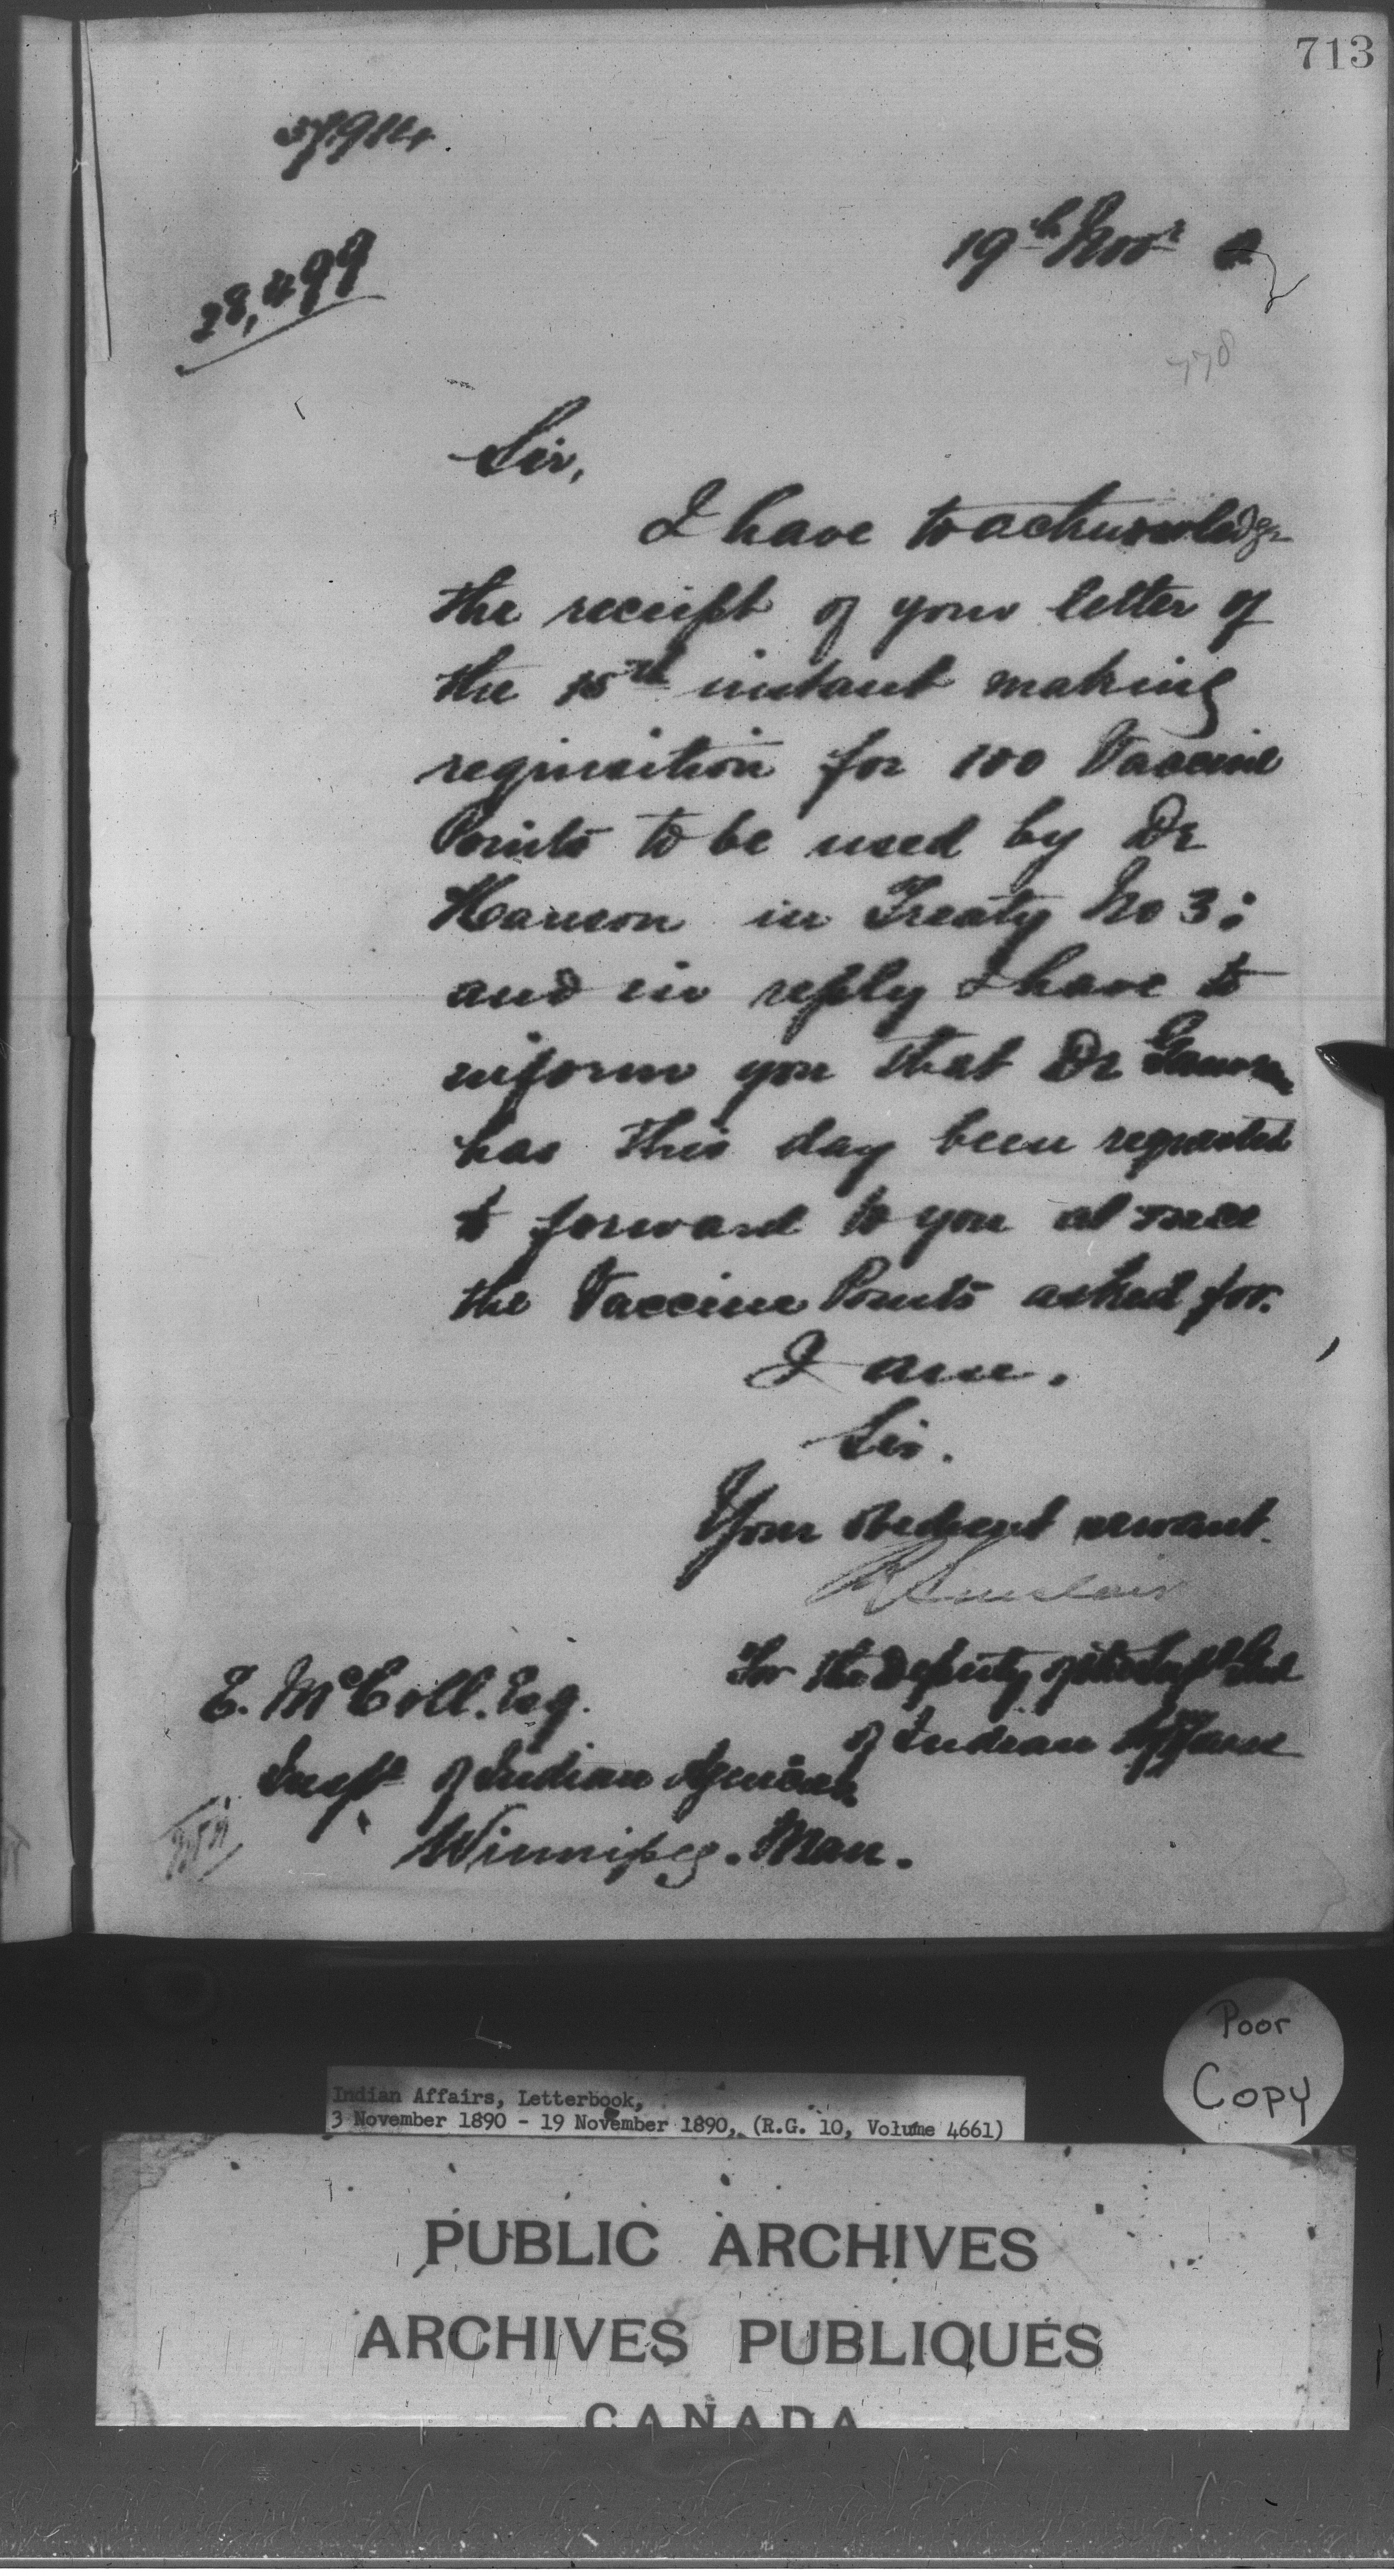 713
37914
19th Novr
28,499
778
Sir,
I have to acknowledge
the receipt of your letter of
the 15th instant making
requisition for 100 Vaccine
Points to be used by Dr
Hanson in Treaty No 3;
and in reply I have to
inform you that Dr
has this day been requested
to forward to you at once
the Vaccine Points asked for.
I am.
Sir.
Your obedient servant.
R Sinclair
For the Deputy of the Supt Genl
of Indian Affairs
E. McColl. Esq.
Inspr of Indian Agencies
Winnipeg. Man.
Poor
Copy
Indian Affairs, Letterbook,
3 November 1890 - 19 November 1890, (R.G. 10, Volume 4661)
PUBLIC ARCHIVES
ARCHIVES PUBLIQUES
CANADA